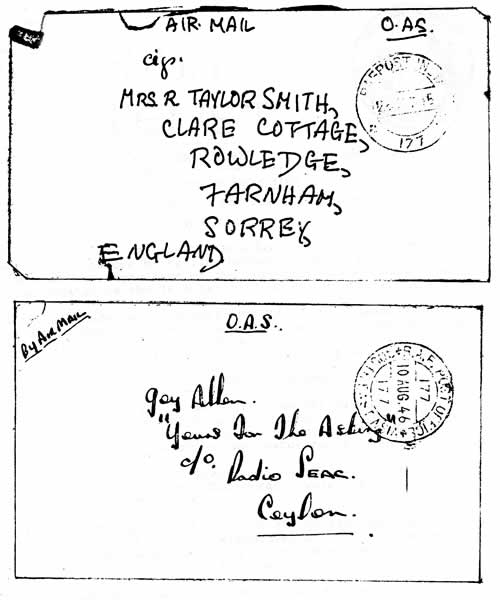 AIR MAIL
O.A.S.
MRS. R TAYLOR SMITH,
CLARE COTTAGE,
ROWLEDGE,
FARNHAM,
SORREY,
ENGLAND
177
By AIR MAIL
O.A.S..
R.A.F. POST OFFICE
177
10 AUG. 46
177
Gay Allen.
"Yours For The Asking
c/o. Radio SEAC.
Ceylon.